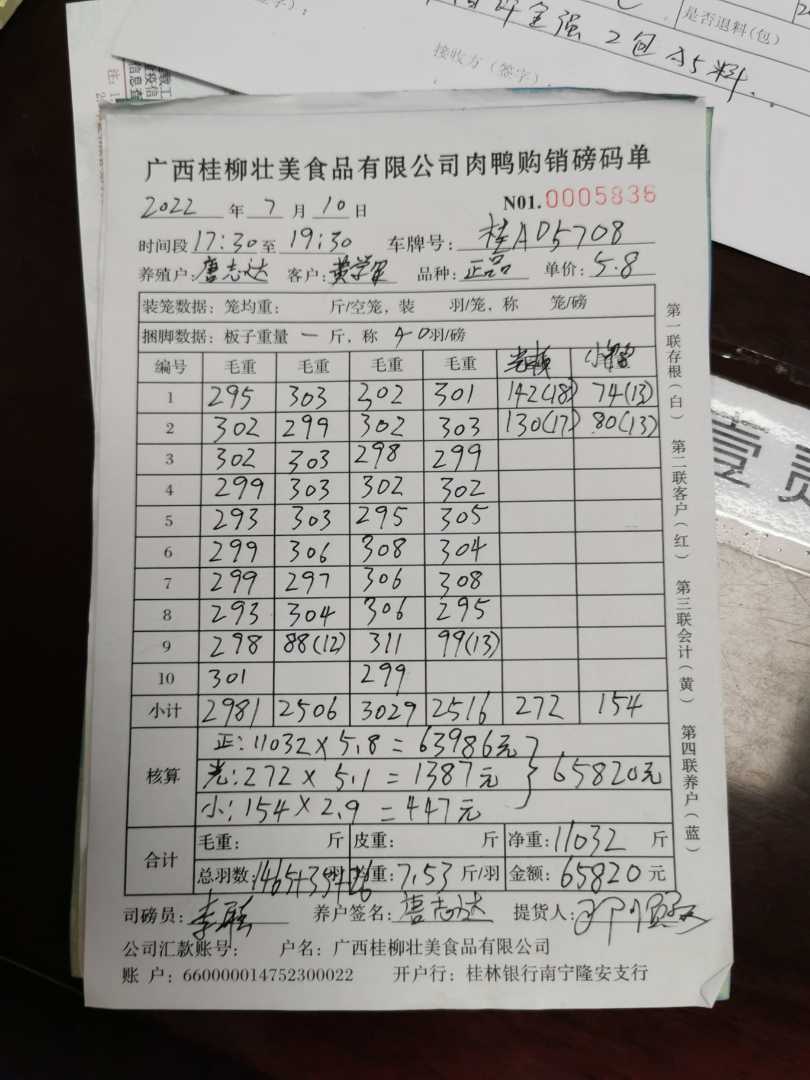 是否退料(包)
金强2包 A5料..
接收方(签字)
广西桂柳壮美食品有限公司肉鸭购销磅码单
2022年7月10日 N01.0005836
时间段17:30至19:30 车牌号:桂AD5708
养殖户:唐志达 客户:黄学军 品种:正品 单价:5.8
装笼数据:笼均重: 斤/空笼,装 羽/笼,称 笼/磅
捆脚数据:板子重量 一 斤,称 40羽/磅
编号 毛重 毛重 毛重 毛重
1 295 303 302 301 142(18) 74(13)
2 302 299 302 303 130(17) 80(13)
3 302 303 298 299
4 299 303 302 302
5 293 303 295 305
6 299 306 308 304
7 299 297 306 308
8 293 304 306 295
9 298 88(12) 311 99(13)
10 301 299
小计 2981 2506 3029 2516 272 154
核算
正:11032×5.8=63986元
光:272×5.1=1387元 }65820元
小:154×2.9=447元
合计
毛重: 斤 皮重: 斤 净重:11032 斤
总羽数:1465+35+26 均重:7.53斤/羽 金额:65820元
司磅员: 养户签名:唐志达 提货人:
公司汇款账号: 户名:广西桂柳壮美食品有限公司
账 户:660000014752300022 开户行:桂林银行南宁隆安支行
第一联存根(白) 第二联客户(红) 第三联会计(黄) 第四联养户(蓝)
壹责